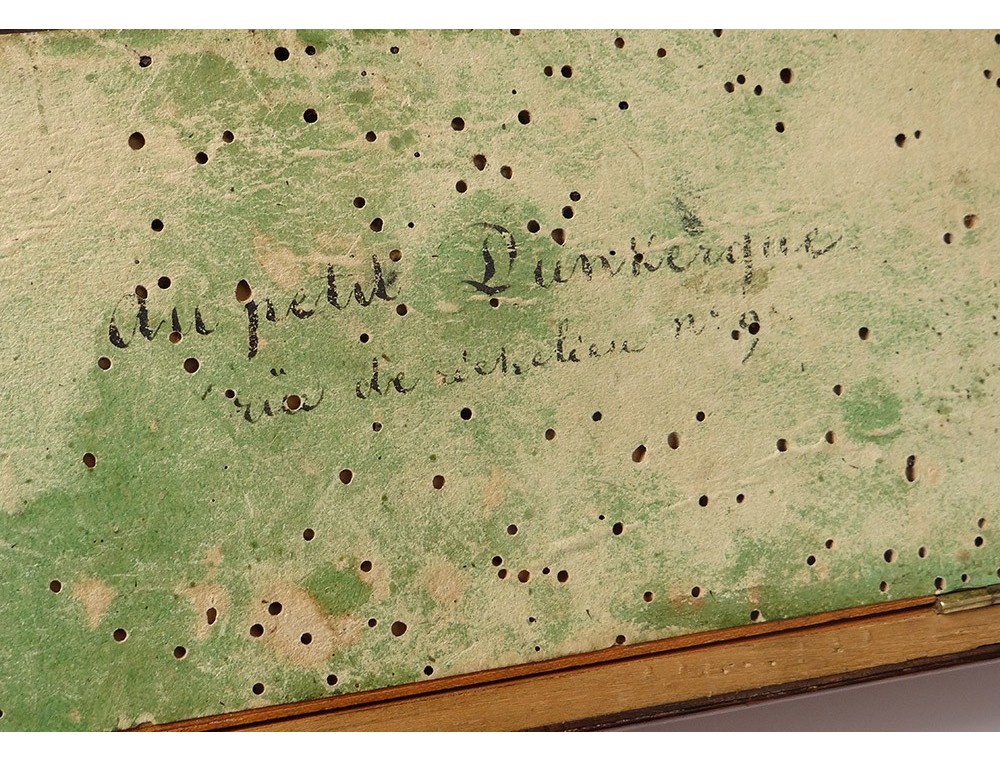 Au petit Dunkerque
rüe de richelieu n° 9